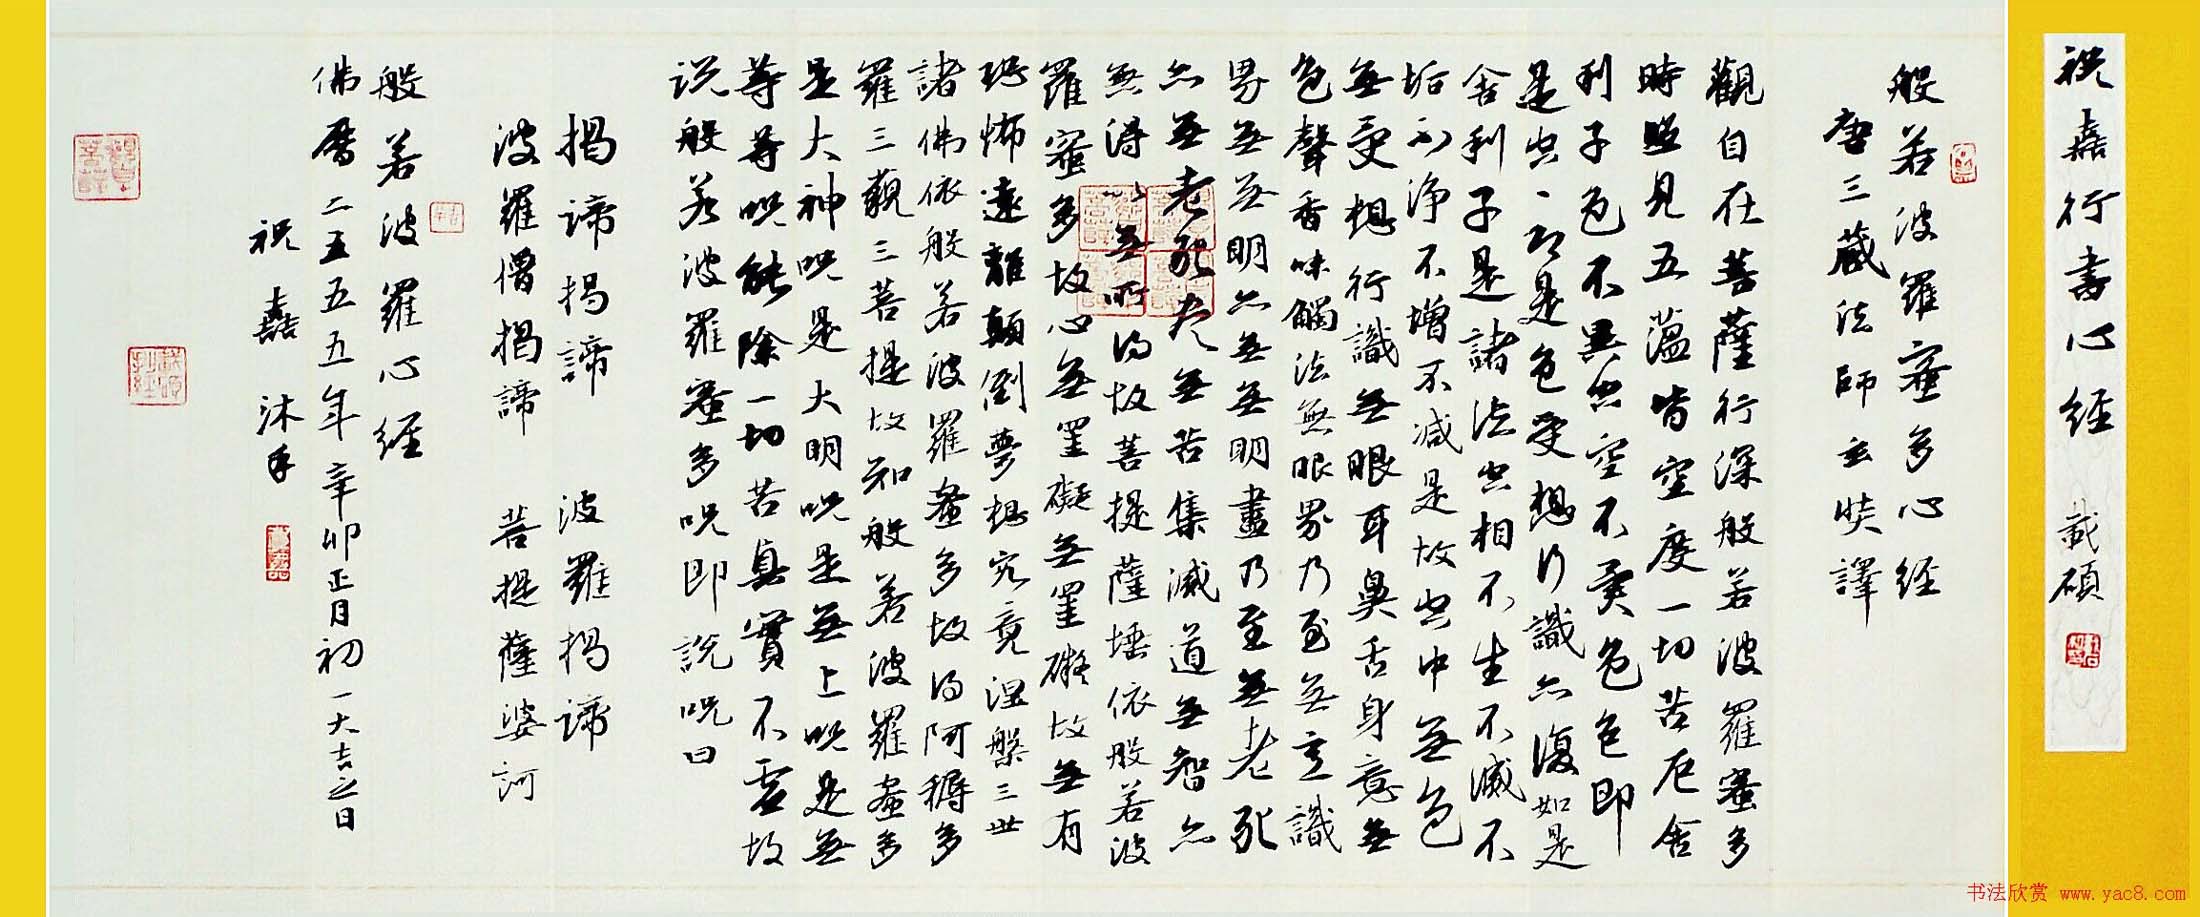 祝嘉行書心經 載碩
般若波羅蜜多心經
唐三藏法師玄奘譯
觀自在菩薩行深般若波羅蜜多
時照見五蘊皆空度一切苦厄舍
利子色不異空空不異色色即
是空〻即是色受想行識亦復如是
舍利子是諸法空相不生不滅不
垢不淨不增不減是故空中無色
無受想行識無眼耳鼻舌身意無
色聲香味觸法無眼界乃至無意識
界無無明亦無無明盡乃至無老死
亦無老死盡無苦集滅道無智亦
無得以無所得故菩提薩埵依般若波
羅蜜多故心無罣礙無罣礙故無有
恐怖遠離顛倒夢想究竟涅槃三世
諸佛依般若波羅蜜多故得阿耨多
羅三藐三菩提故知般若波羅蜜多
是大神咒是大明咒是無上咒是無
等等咒能除一切苦真實不虛故
說般若波羅蜜多咒即說咒曰
揭諦揭諦 波羅揭諦
波羅僧揭諦 菩提薩婆訶
般若波羅心經
佛曆二五五五年辛卯正月初一大吉之日
祝嘉沐手
书法欣赏 www.yac8.com